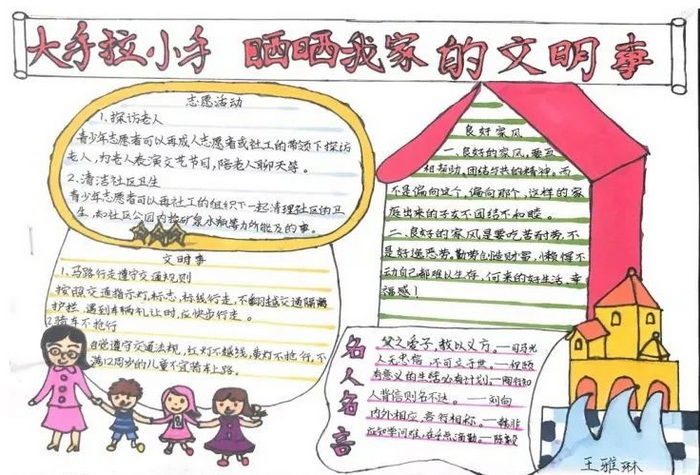 大手拉小手 晒晒我家的文明事
志愿活动
1、探访老人
青少年志愿者可以再成人志愿者或社工的带领下探访
老人,为老人表演文艺节目,陪老人聊天等。
2.清洁社区卫生
青少年志愿者可以再社工的组织下一起清理社区的卫
生,如社区公园内捡矿泉水瓶等力所能及的事。
文明事
1、马路行走遵守交通规则
按照交通指示灯,标志,标线行走,不翻越交通隔离
护栏,遇到车辆礼让时,应快步行走。
2骑车不抢行
自觉遵守交通法规,红灯不越线,黄灯不抢行,不
满12周岁的儿童不宜骑车上路。
良好家风
一、良好的家风,要互
相帮助,团结与共的精神,而
不是偏向这个,偏向那个,这样的家
庭出来的子女不团结不和睦。
二、良好的家风是要吃苦耐劳,不
是好逸恶劳,勤劳创造财富,小懒惰不
动自己都难以生存,何来的好生活,幸
福感!
名人名言
父之爱子,教以义方。——司马光
人无忠信,不可立于世。——程颐
有意义的生活必有计划。——陶行知
人背信则名不达。——刘向
内外相应,言行相称。——韩非
应知学问难,在乎点滴勤。——陈毅
王雅琳